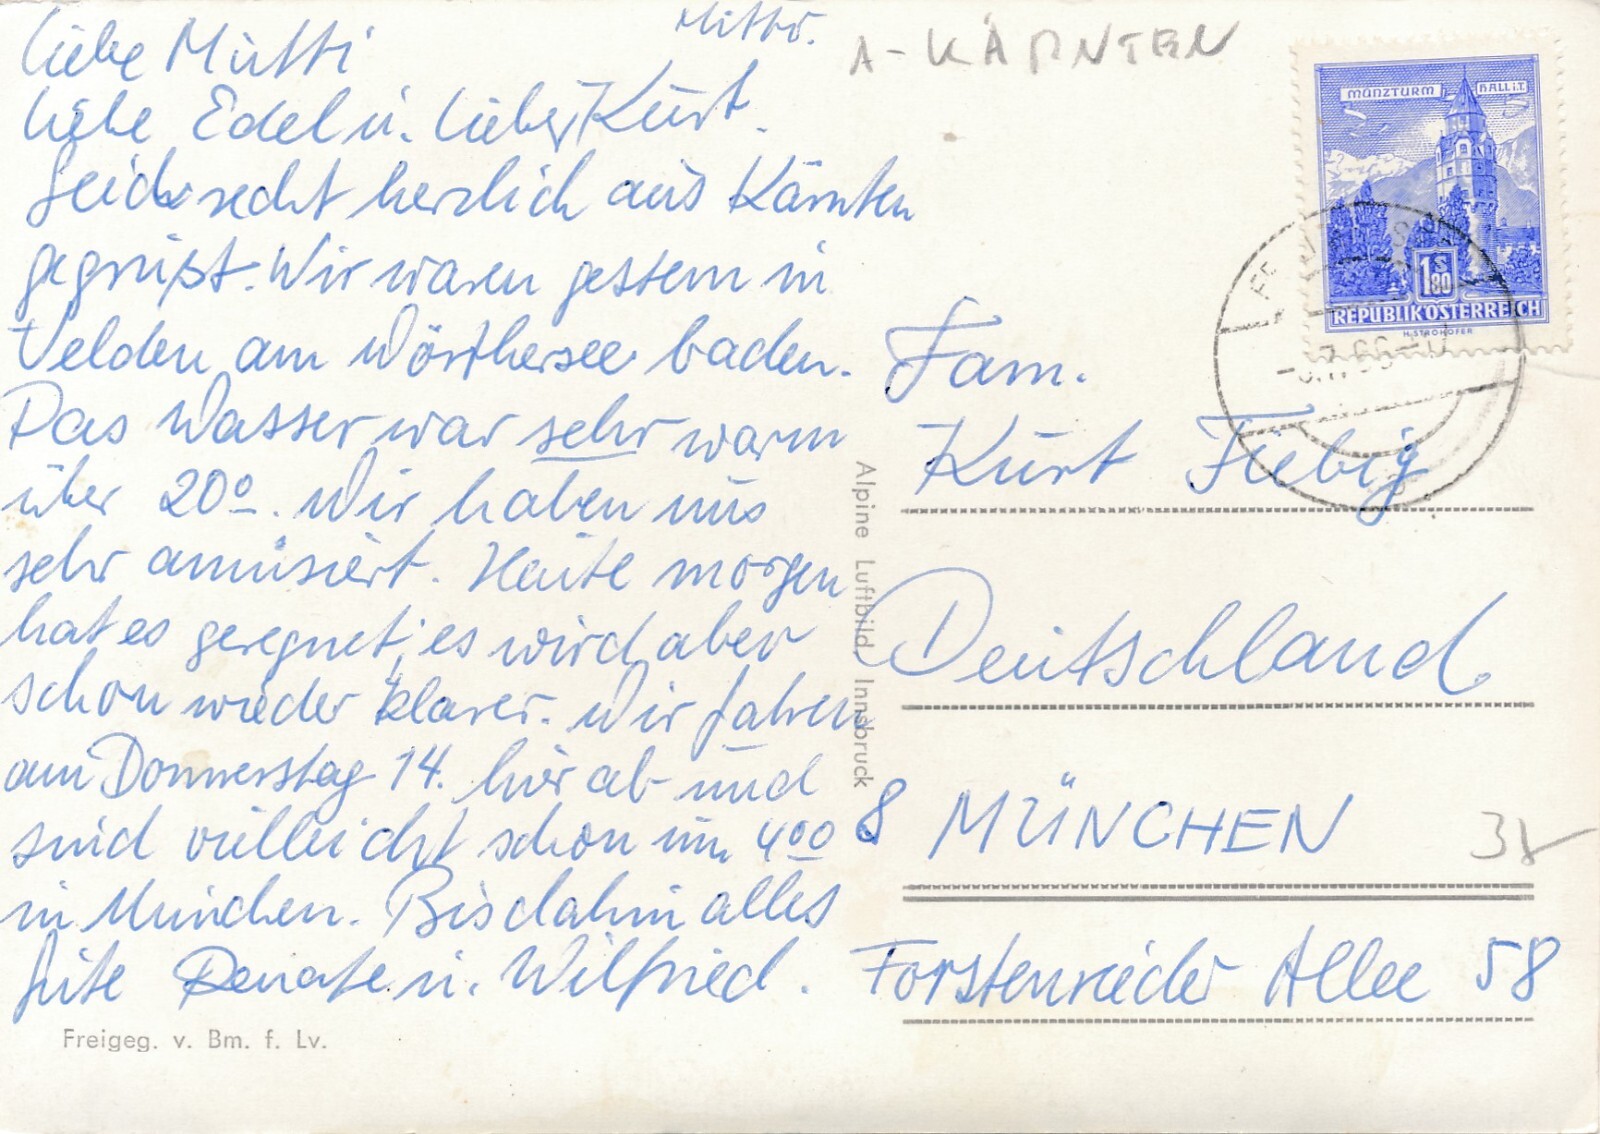 Mittw.
Liebe Mutti
liebe Edel u. lieber Kurt.
Seid recht herzlich aus Kärnten
gegrüßt. Wir waren gestern in
Velden am Wörthersee baden.
Das Wasser war sehr warm
über 20°. Wir haben uns
sehr amüsiert. Heute morgen
hat es geregnet; es wird aber
schon wieder klarer. Wir fahren
am Donnerstag 14. hier ab und
sind vielleicht schon um 4⁰⁰
in München. Bis dahin alles
Gute Renate u. Wilfried.
Freigeg. v. Bm. f. Lv.
Alpine Luftbild, Innsbruck
A-KÄRNTEN
MÜNZTURM HALL i.T.
S
1.80
REPUBLIK ÖSTERREICH
H. STROHOFER
Fam.
Kurt Fiebig
Deutschland
8 MÜNCHEN
Forstenrieder Allee 58